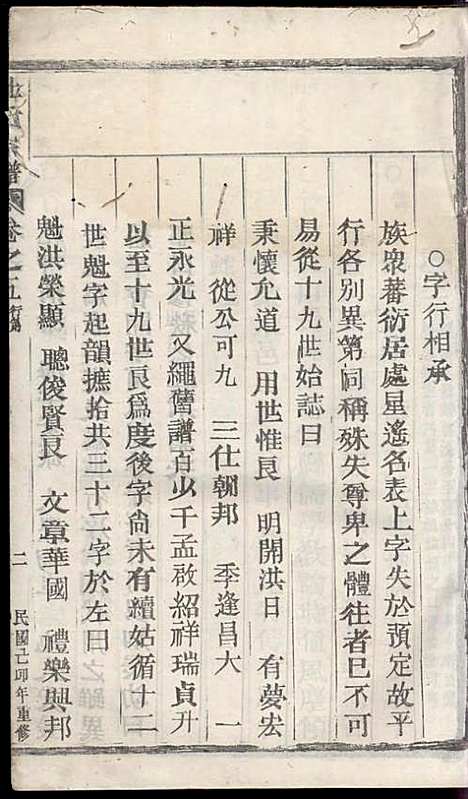 ○字行相承
族衆蕃衍居處星遙名表上字失於預定故平
行各別異第同稱殊失尊卑之體往者已不可
易從十九世始誌曰
秉懷允道 用世惟良 明開洪日 有夢宏
祥 從公可九 三仕朝邦 季逢昌大 一
正永光 又繩舊譜百少千孟啟紹祥瑞貞升
以至十九世良爲度後字尚未有續姑循十二
世魁字起韻摭拾共三十二字於左曰
魁洪榮顯 聰俊賢良 文章華國 禮樂興邦
譜 卷之五 二 民國己卯年重修